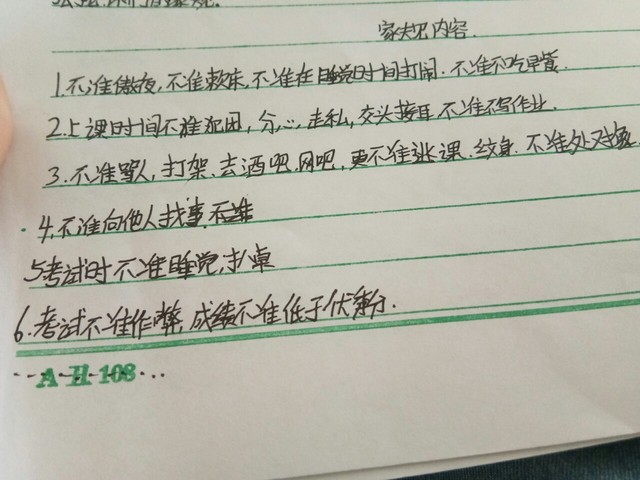 家规内容.
1.不准傲夜,不准赖床,不准在睡觉时间打闹.不准不吃早餐.
2.上课时间不准犯困,分心,走私,交头接耳,不准不写作业.
3.不准骂人,打架、去酒吧.网吧,更不准逃课.纹身.不准处对
4.不准向他人找事.不准
5考试时不准睡觉,扒桌
6.考试不准作弊,成绩不准低于
A H 108